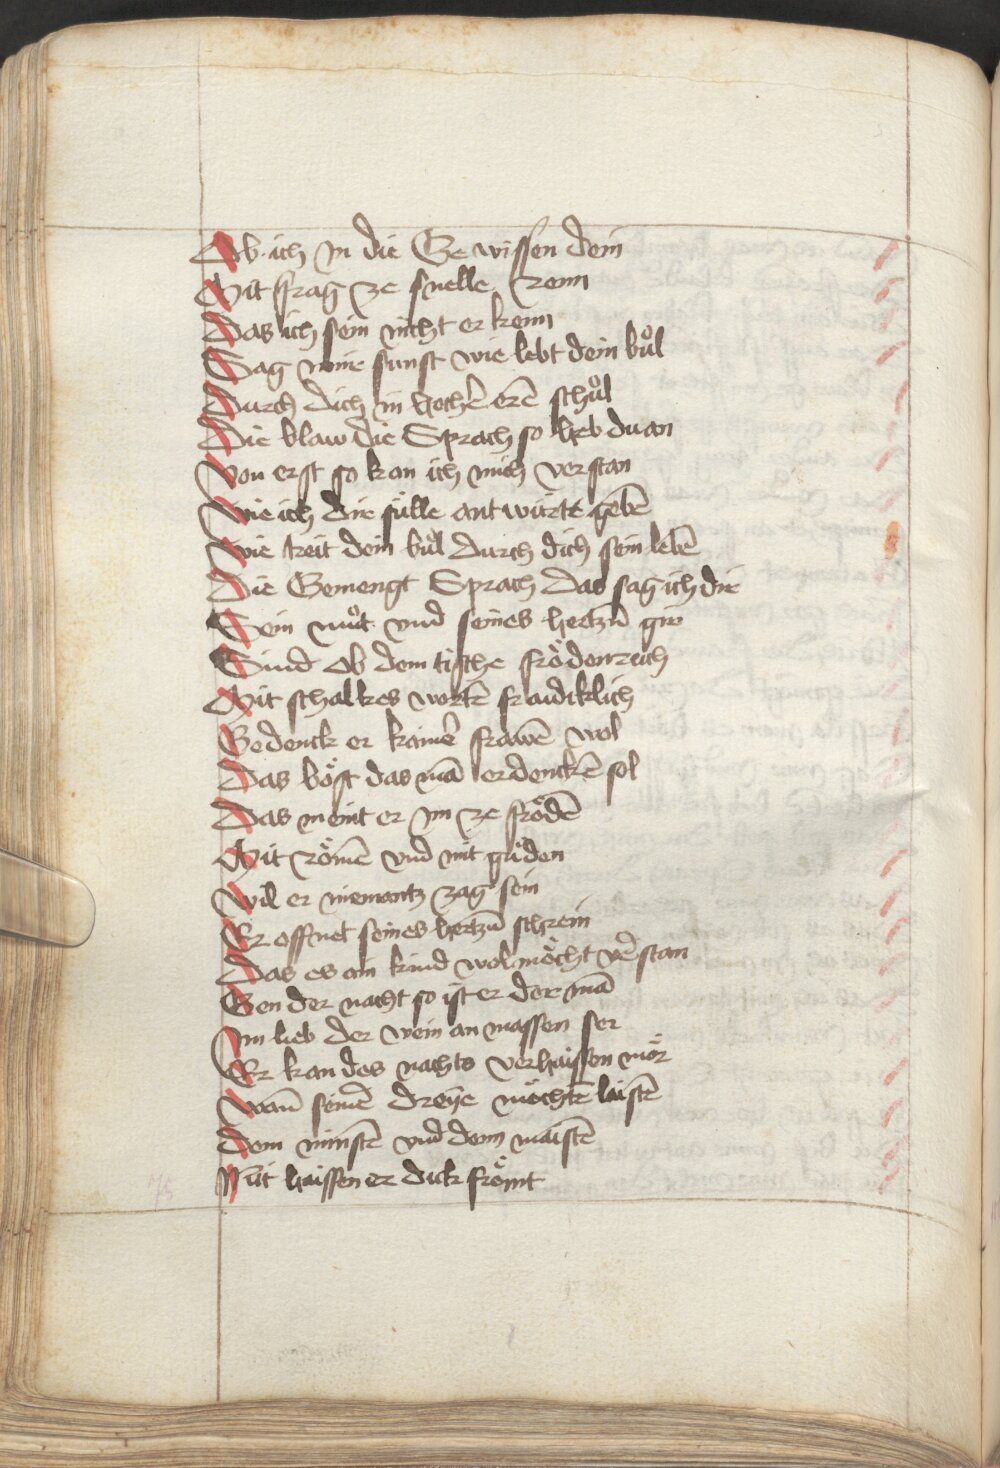 Ob ich In die Gewissen dein
Mit frag ze snelle renn
Das ich sein nicht erkenn
Sag mir sunst wie lebt dein bůl
Durch dich in hochē erē schůl
Die blaw die Sprach so heb du an
Von erst so kan ich mich verstan
Wie ich dir sülle antwürte gebē
Wie treit dein bůl Durch dich sein lebē
Die Gemengt Sprach das sag ich dir
Sein můt vnd seines hertzn̄ gir
Sind ob dem tische frödenreich
Mit schalkes wortē fraidiklich
Gedenck er kainer frawē wol
Das böst das mā erdenckē sol
Das meint er Im ze frödē
Mit römē vnd mit güden
Wil er niemantz zag sein
Er offnet seines hertzn̄ schrein
Das es ain kind wol möcht v̄stan
Gen der nacht so ist er der mā
Im lieb der wein an massen ser
Er kan des nachts verhaissen mör
Wan̄ seinē dreÿe möchtē laistē
Dem minstē vnd dem maistē
Mit haissen er dick frömt